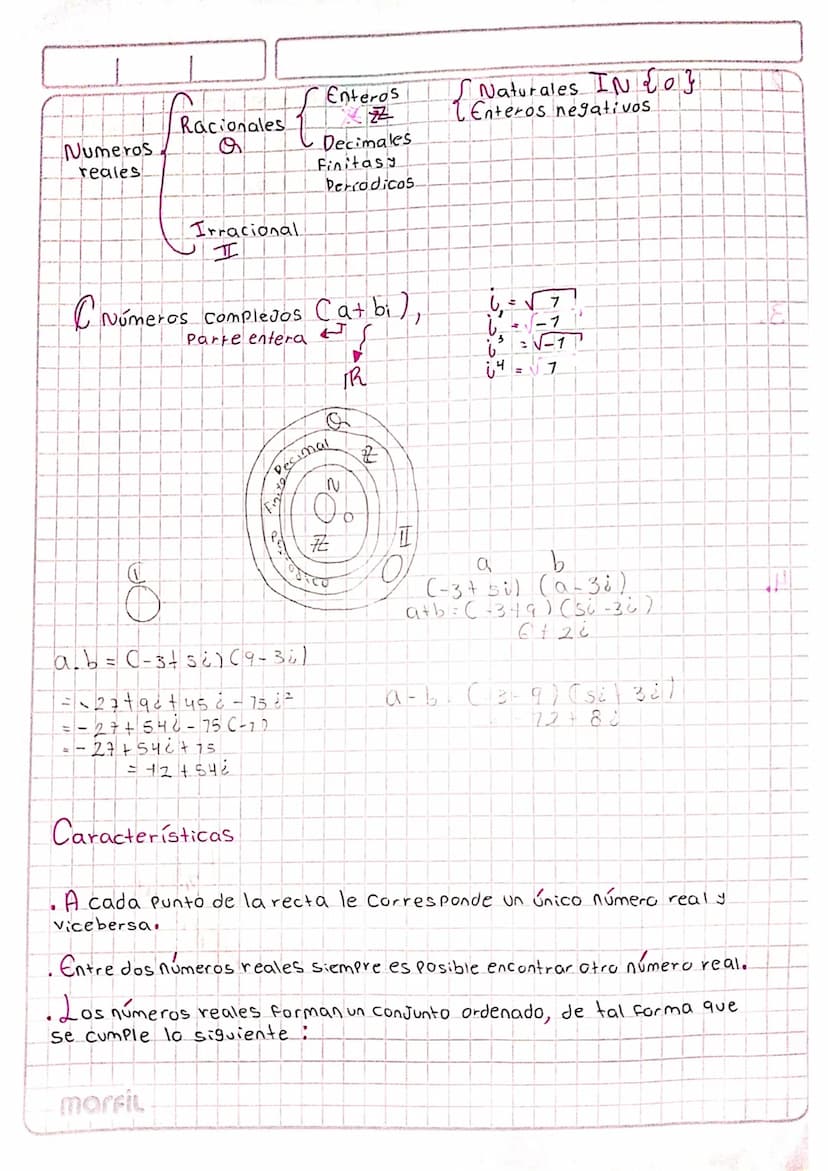 Numeros
reales
Racionales
Q
Irracional
II
Enteros
Z
Decimales
Finitas y
Percodicos
Naturales IN {0}
Enteros negativos
C Números complejos (a+bi),
Parte entera
IR
i = √1
i = √-1
i³ = √-1
i⁴ = √1
Q
Decimal
Z
Finito
N
0
Z
II
I
a b
(-3+5i) (a-3i)
a+b=(-3+9)(5i-3i)
6+2i
a.b = (-3+5i)(9-3i)
= -27+9i+45i-15i²
= -27+54i-15(-1)
= -27+54i+15
= 12+54i
a-b (3-9)(5i) 3i)
12+8i
Características
. A cada punto de la recta le corresponde un único número real y
vicebersa.
. Entre dos números reales siempre es posible encontrar otro número real.
. Los números reales forman un conjunto ordenado, de tal forma que
se cumple lo siguiente :
marfil